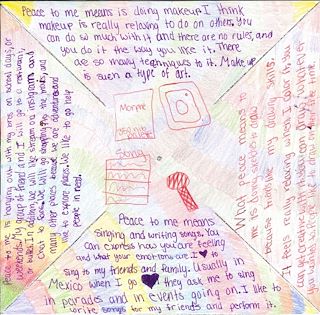 Peace to me means is doing makeup I think
makeup is really relaxing to do on others. You
can do so much with it and there are no rules, and
you do it the way you like it. There
are so many techniques to it. Makeup
is such a type of art.
What peace means to
me is doing sketches to draw
because practice my drawing skills.
It feels really relaxing when I color it. You
can get creative with
you wanna do. People like to draw in their free time
Peace to me means
singing and writing songs. You
can express how you are feeling
and what your emotions are. I
sing to my friends and family. Usually in
Mexico when I go they ask me to sing
in parades and in events going on. I like to
write songs for my friends and perform it.
Peace to me is hanging out with my bros on bored days, or
weekends. My group of friend and I will go to a restaurant,
or outside. Usually we will like stream on instagram and
chat to them. We will go shopping
many other places because we are adventurous and
like to explore places. We like to go help
people in need.
Song